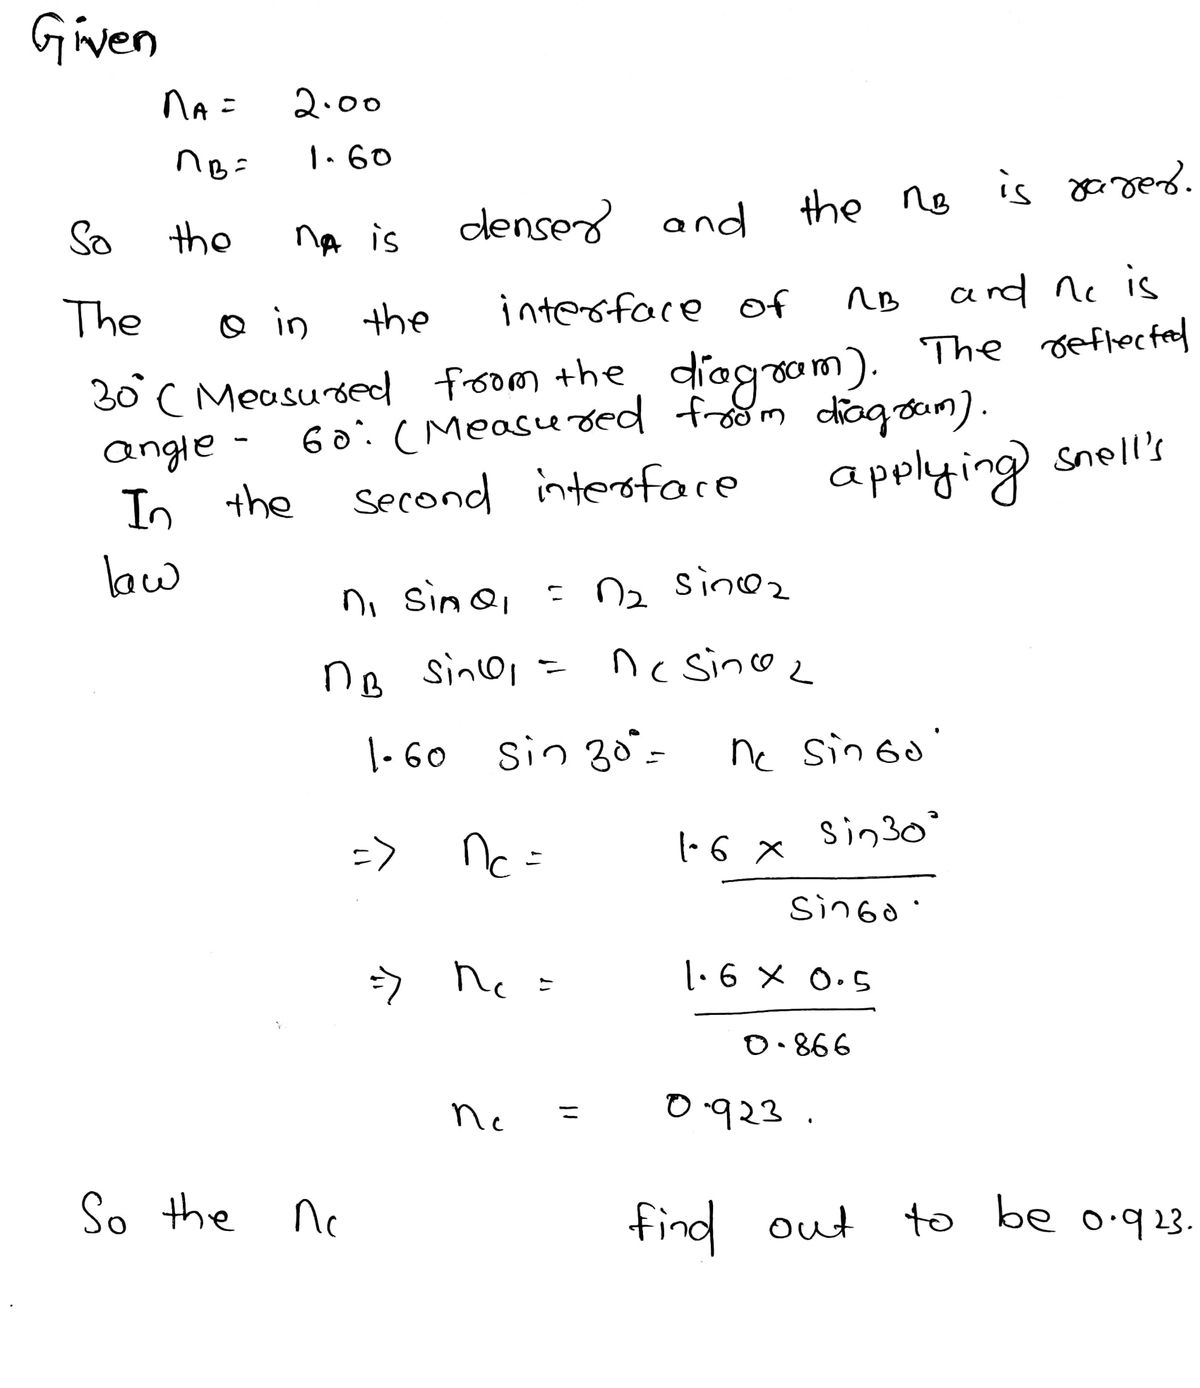 Given
nA = 2.00
nB = 1.60
So the nA is denser and the nB is rarer.
The θ in the interface of nB and nc is
30° (Measured from the diagram). The reflected
angle - 60°. (Measured from diagram).
In the second interface applying snell's
law
n1 sin θ1 = n2 sin θ2
nB sin θ1 = nc sin θ2
1.60 sin 30° = nc sin 60°
=> nc = 1.6 × sin 30°
sin 60°
=> nc = 1.6 × 0.5
0.866
nc = 0.923.
So the nc find out to be 0.923.